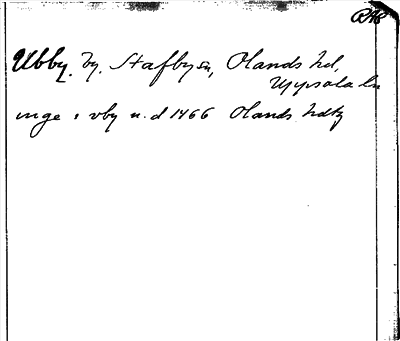 RAÄ
Ubby. by. Stafby sn, Olands hd,
Uppsala ln
inge i vby u. d 1466 Olands hdtg